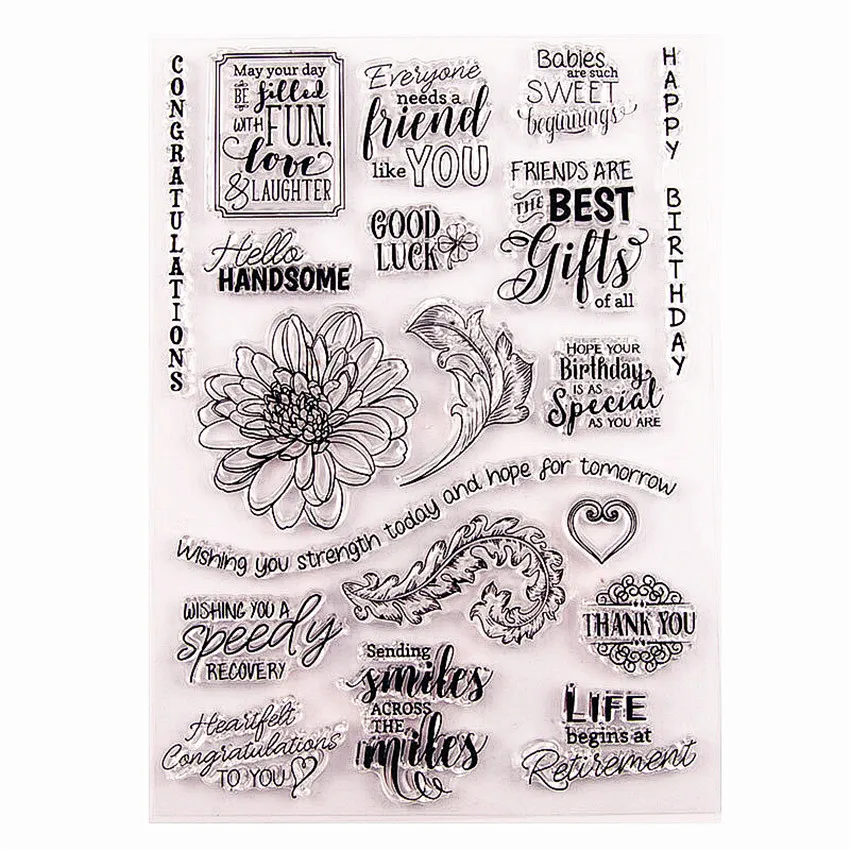 CONGRATULATIONS
May your day
BE filled
WITH FUN,
love
& LAUGHTER
Everyone
needs a
friend
like YOU
Babies
are such
SWEET
beginnings
HAPPY BIRTHDAY
FRIENDS ARE
THE BEST
Gifts
of all
GOOD
LUCK
Hello
HANDSOME
HOPE YOUR
Birthday
IS AS
Special
AS YOU ARE
Wishing you strength today and hope for tomorrow
WISHING YOU A
speedy
RECOVERY
THANK YOU
Sending
smiles
ACROSS
THE
miles
LIFE
begins at
Retirement
Heartfelt
Congratulations
TO YOU